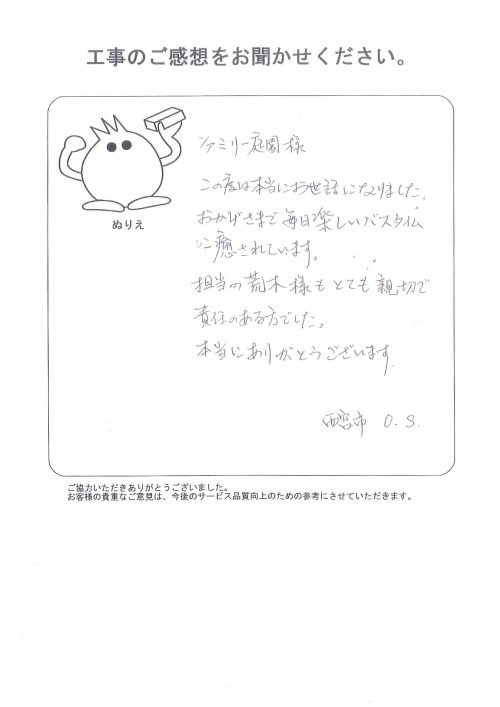 工事のご感想をお聞かせください。
ぬりえ
ファミリー庭園様
この度は本当にお世話になりました。
おかげさまで毎日楽しいバスタイム
に癒されています。
担当の荒木様もとても親切で
責任のある方でした。
本当にありがとうございます。
西宮市 O.S.
ご協力いただきありがとうございました。
お客様の貴重なご意見は、今後のサービス品質向上のための参考にさせていただきます。